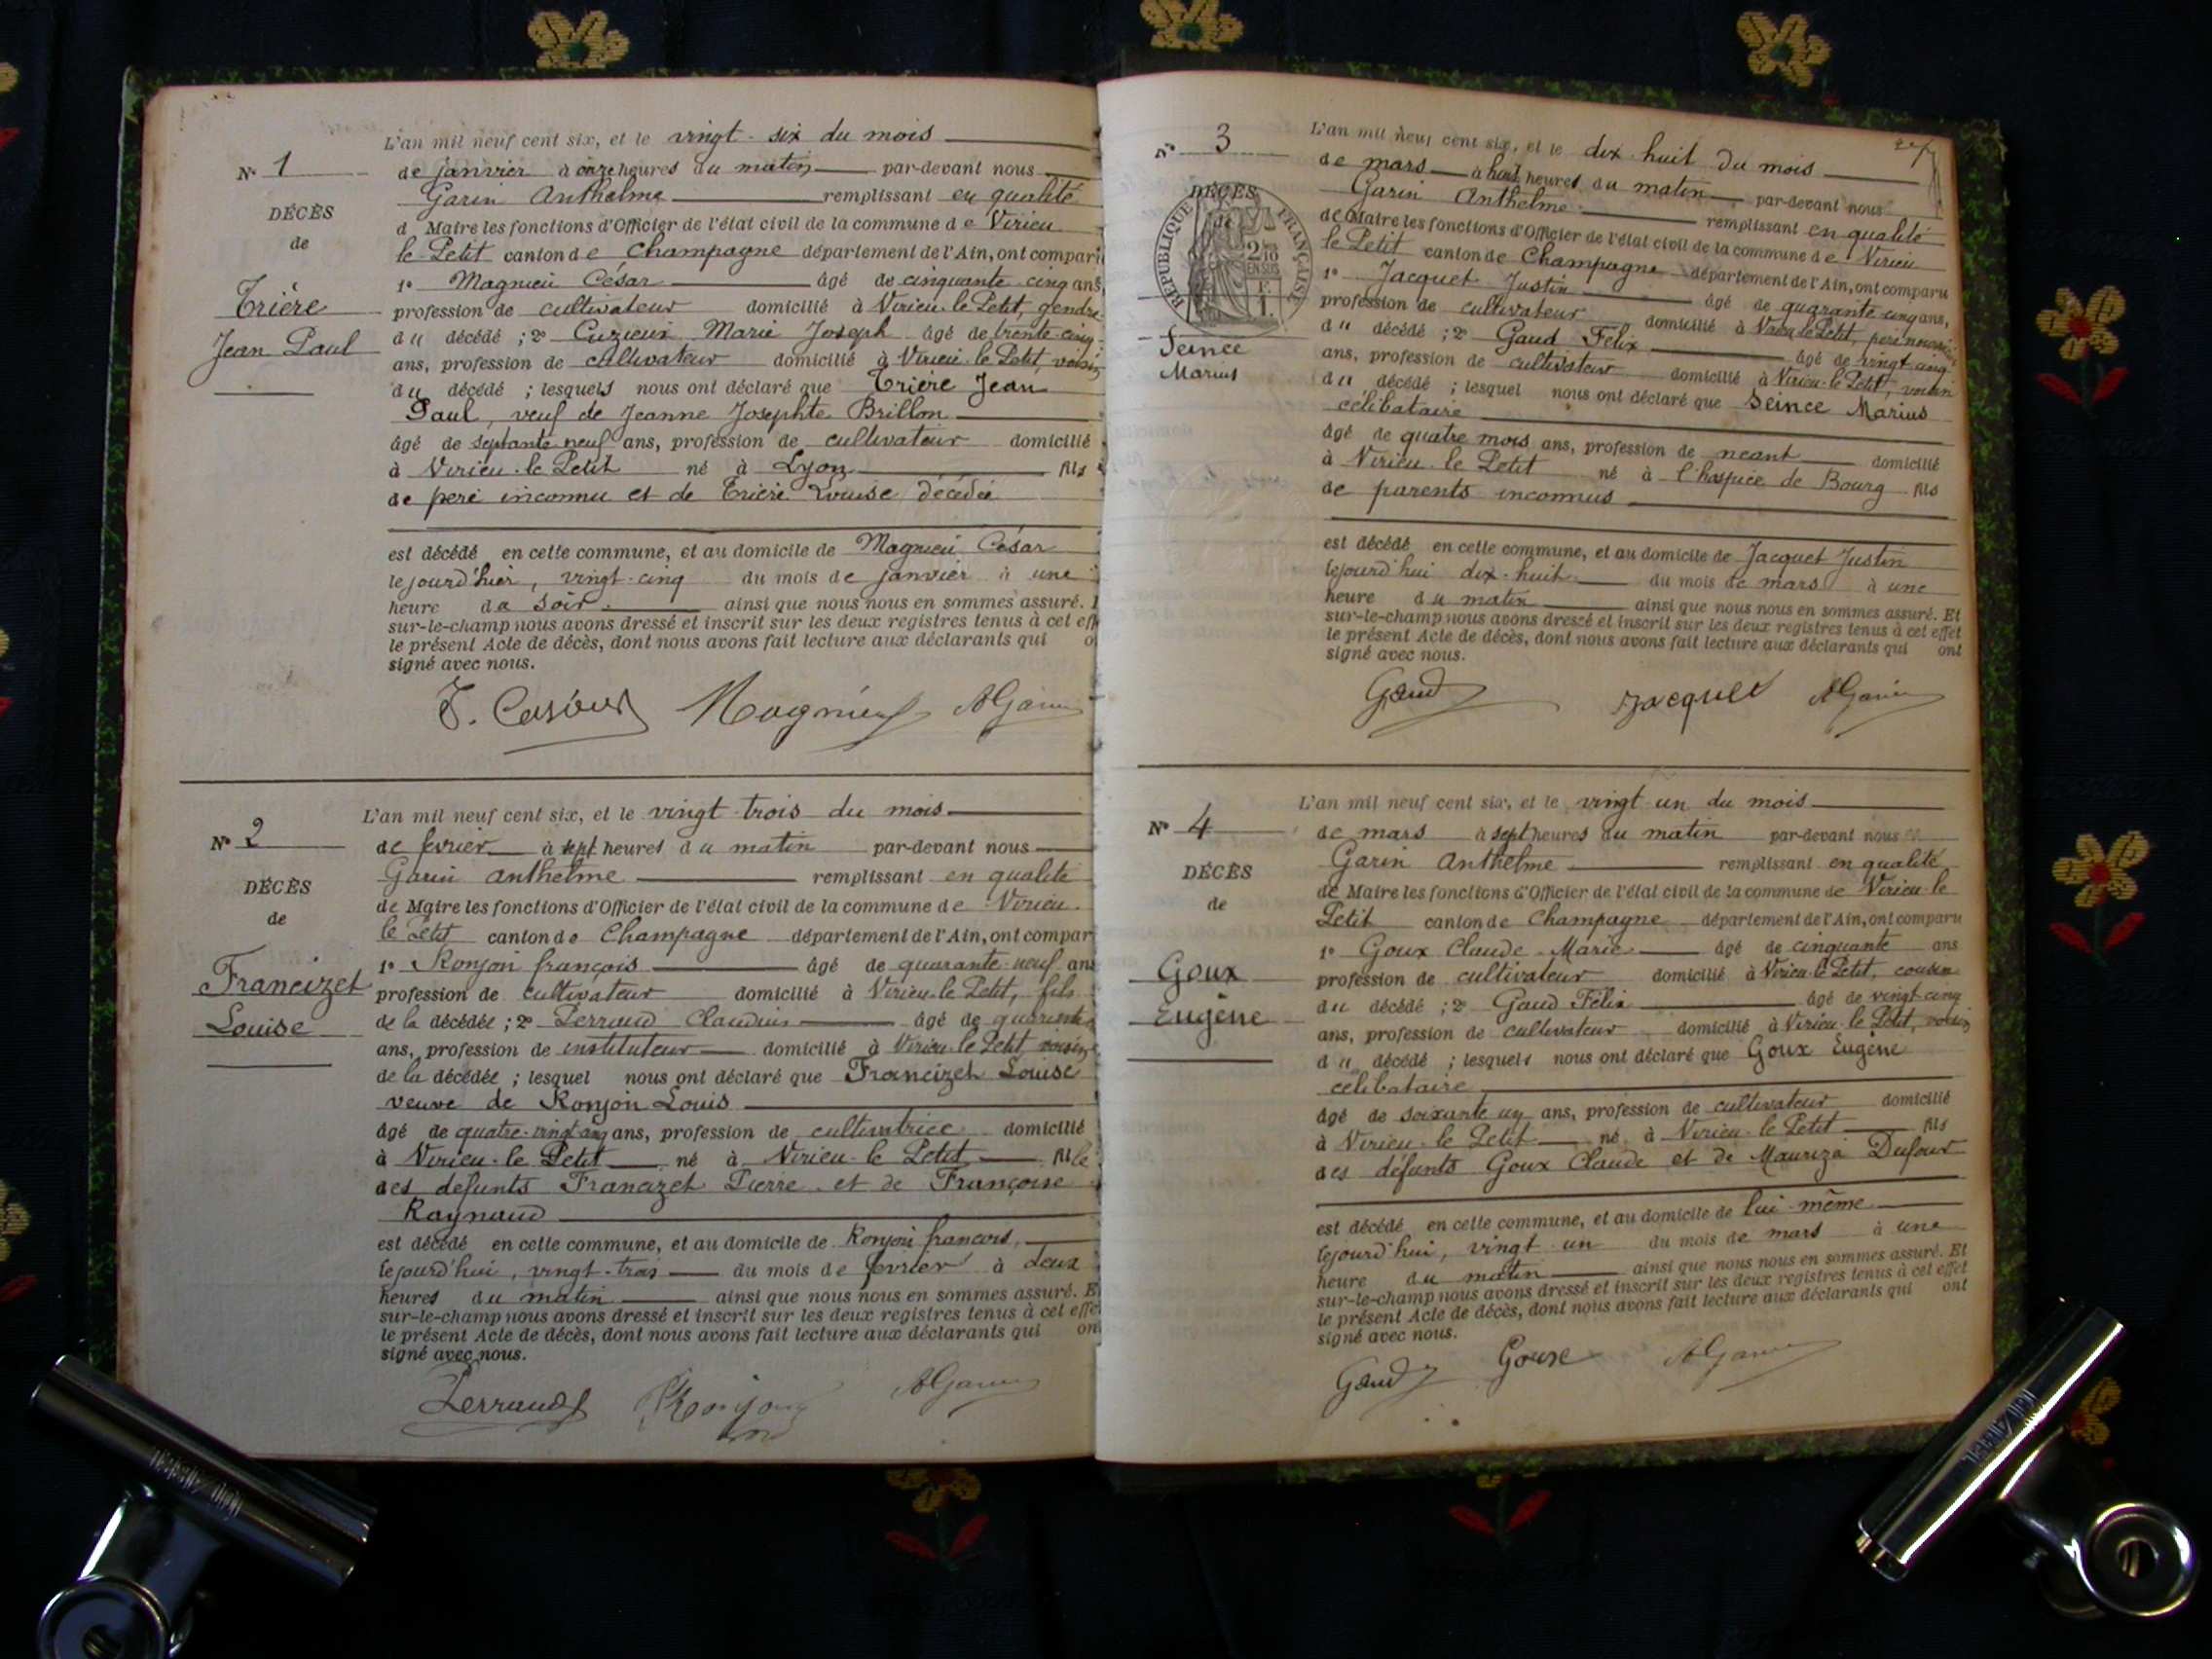 N° 1
DÉCÈS
de
Trière
Jean Paul
L'an mil neuf cent six, et le vingt-six du mois
de janvier à onze heures du matin par-devant nous
Garin Anthelme remplissant en qualité
d Maire les fonctions d'Officier de l'état civil de la commune de Virieu
le-Petit canton de Champagne département de l'Ain, ont compar
1° Magnieu César âgé de cinquante-cinq ans,
profession de cultivateur domicilié à Virieu-le-Petit, gendre
du décédé ; 2° Cuzieux Marie Joseph âgé de trente-cinq
ans, profession de cultivateur domicilié à Virieu-le-Petit, voisin
du décédé ; lesquels nous ont déclaré que Trière Jean
Paul, veuf de Jeanne Josephte Brillon
âgé de septante neuf ans, profession de cultivateur domicilié
à Virieu-le-Petit né à Lyon fils
de père inconnu et de Trière Louise décédée
est décédé en cette commune, et au domicile de Magnieu César
le jourd'hier, vingt-cinq du mois de janvier à une
heure du soir ainsi que nous nous en sommes assuré.
sur-le-champ nous avons dressé et inscrit sur les deux registres tenus à cet eff
le présent Acte de décès, dont nous avons fait lecture aux déclarants qui o
signé avec nous.
Magnieu AGarin
N° 2
DÉCÈS
de
Francizet
Louise
L'an mil neuf cent six, et le vingt-trois du mois
de fevrier à sept heures du matin par-devant nous
Garin Anthelme remplissant en qualité
de Maire les fonctions d'Officier de l'état civil de la commune de Virieu
le Petit canton de Champagne département de l'Ain, ont compar
1° Ronjon françois âgé de quarante-neuf ans
profession de cultivateur domicilié à Virieu-le-Petit, fils
de la décédée ; 2° Perraud Claudius âgé de quarante
ans, profession de instituteur domicilié à Virieu-le-Petit, voisin
de la décédée ; lesquel nous ont déclaré que Francizet Louise
veuve de Ronjon Louis
âgé de quatre-vingt ans, profession de cultivatrice domicilié
à Virieu-le-Petit né à Virieu-le-Petit fille
des defunts Francizet Pierre et de Françoise
Raynaud
est décédé en cette commune, et au domicile de Ronjon francois,
le jourd'hui, vingt-trois du mois de fevrier à deux
heures du matin ainsi que nous nous en sommes assuré. E
sur-le-champ nous avons dressé et inscrit sur les deux registres tenus à cet effe
le présent Acte de décès, dont nous avons fait lecture aux déclarants qui on
signé avec nous.
Perraud Ronjon AGarin
N° 3
DÉCÈS
de
RÉPUBLIQUE FRANÇAISE
2/10
EN SUS
Seince
Marius
L'an mil neuf cent six, et le dix-huit du mois
de mars à huit heures du matin par-devant nous
Garin Anthelme remplissant en qualité
de Maire les fonctions d'Officier de l'état civil de la commune de Virieu
le Petit canton de Champagne département de l'Ain, ont comparu
1° Jacquet Justin âgé de quarante cinq ans,
profession de cultivateur domicilié à Virieu le Petit, père nourricier
du décédé ; 2° Gaud Félix âgé de vingt-cinq
ans, profession de cultivateur domicilié à Virieu-le-Petit, voisin
du décédé ; lesquel nous ont déclaré que Seince Marius
célibataire
âgé de quatre mois ans, profession de neant domicilié
à Virieu-le Petit né à l'hospice de Bourg fils
de parents inconnus
est décédé en cette commune, et au domicile de Jacquet Justin
le jourd'hui dix-huit du mois de mars à une
heure du matin ainsi que nous nous en sommes assuré. Et
sur-le-champ nous avons dressé et inscrit sur les deux registres tenus à cet effet
le présent Acte de décès, dont nous avons fait lecture aux déclarants qui ont
signé avec nous.
Gaud Jacquet AGarin
N° 4
DÉCÈS
de
Goux
Eugène
L'an mil neuf cent six, et le vingt-un du mois
de mars à sept heures du matin par-devant nous
Garin Anthelme remplissant en qualité
de Maire les fonctions d'Officier de l'état civil de la commune de Virieu-le
Petit canton de Champagne département de l'Ain, ont comparu
1° Goux Claude-Marie âgé de cinquante ans
profession de cultivateur domicilié à Virieu-le-Petit, cousin
du décédé ; 2° Gaud Félix âgé de vingt-cinq
ans, profession de cultivateur domicilié à Virieu-le-Petit, voisin
du décédé ; lesquels nous ont déclaré que Goux Eugène
célibataire
âgé de soixante un ans, profession de cultivateur domicilié
à Virieu-le-Petit né à Virieu-le-Petit fils
des défunts Goux Claude et de Mauriza Dufour
est décédé en cette commune, et au domicile de lui-même
le jourd'hui, vingt-un du mois de mars à une
heure du matin ainsi que nous nous en sommes assuré. Et
sur-le-champ nous avons dressé et inscrit sur les deux registres tenus à cet effet
le présent Acte de décès, dont nous avons fait lecture aux déclarants qui ont
signé avec nous.
Gaud Goux AGarin